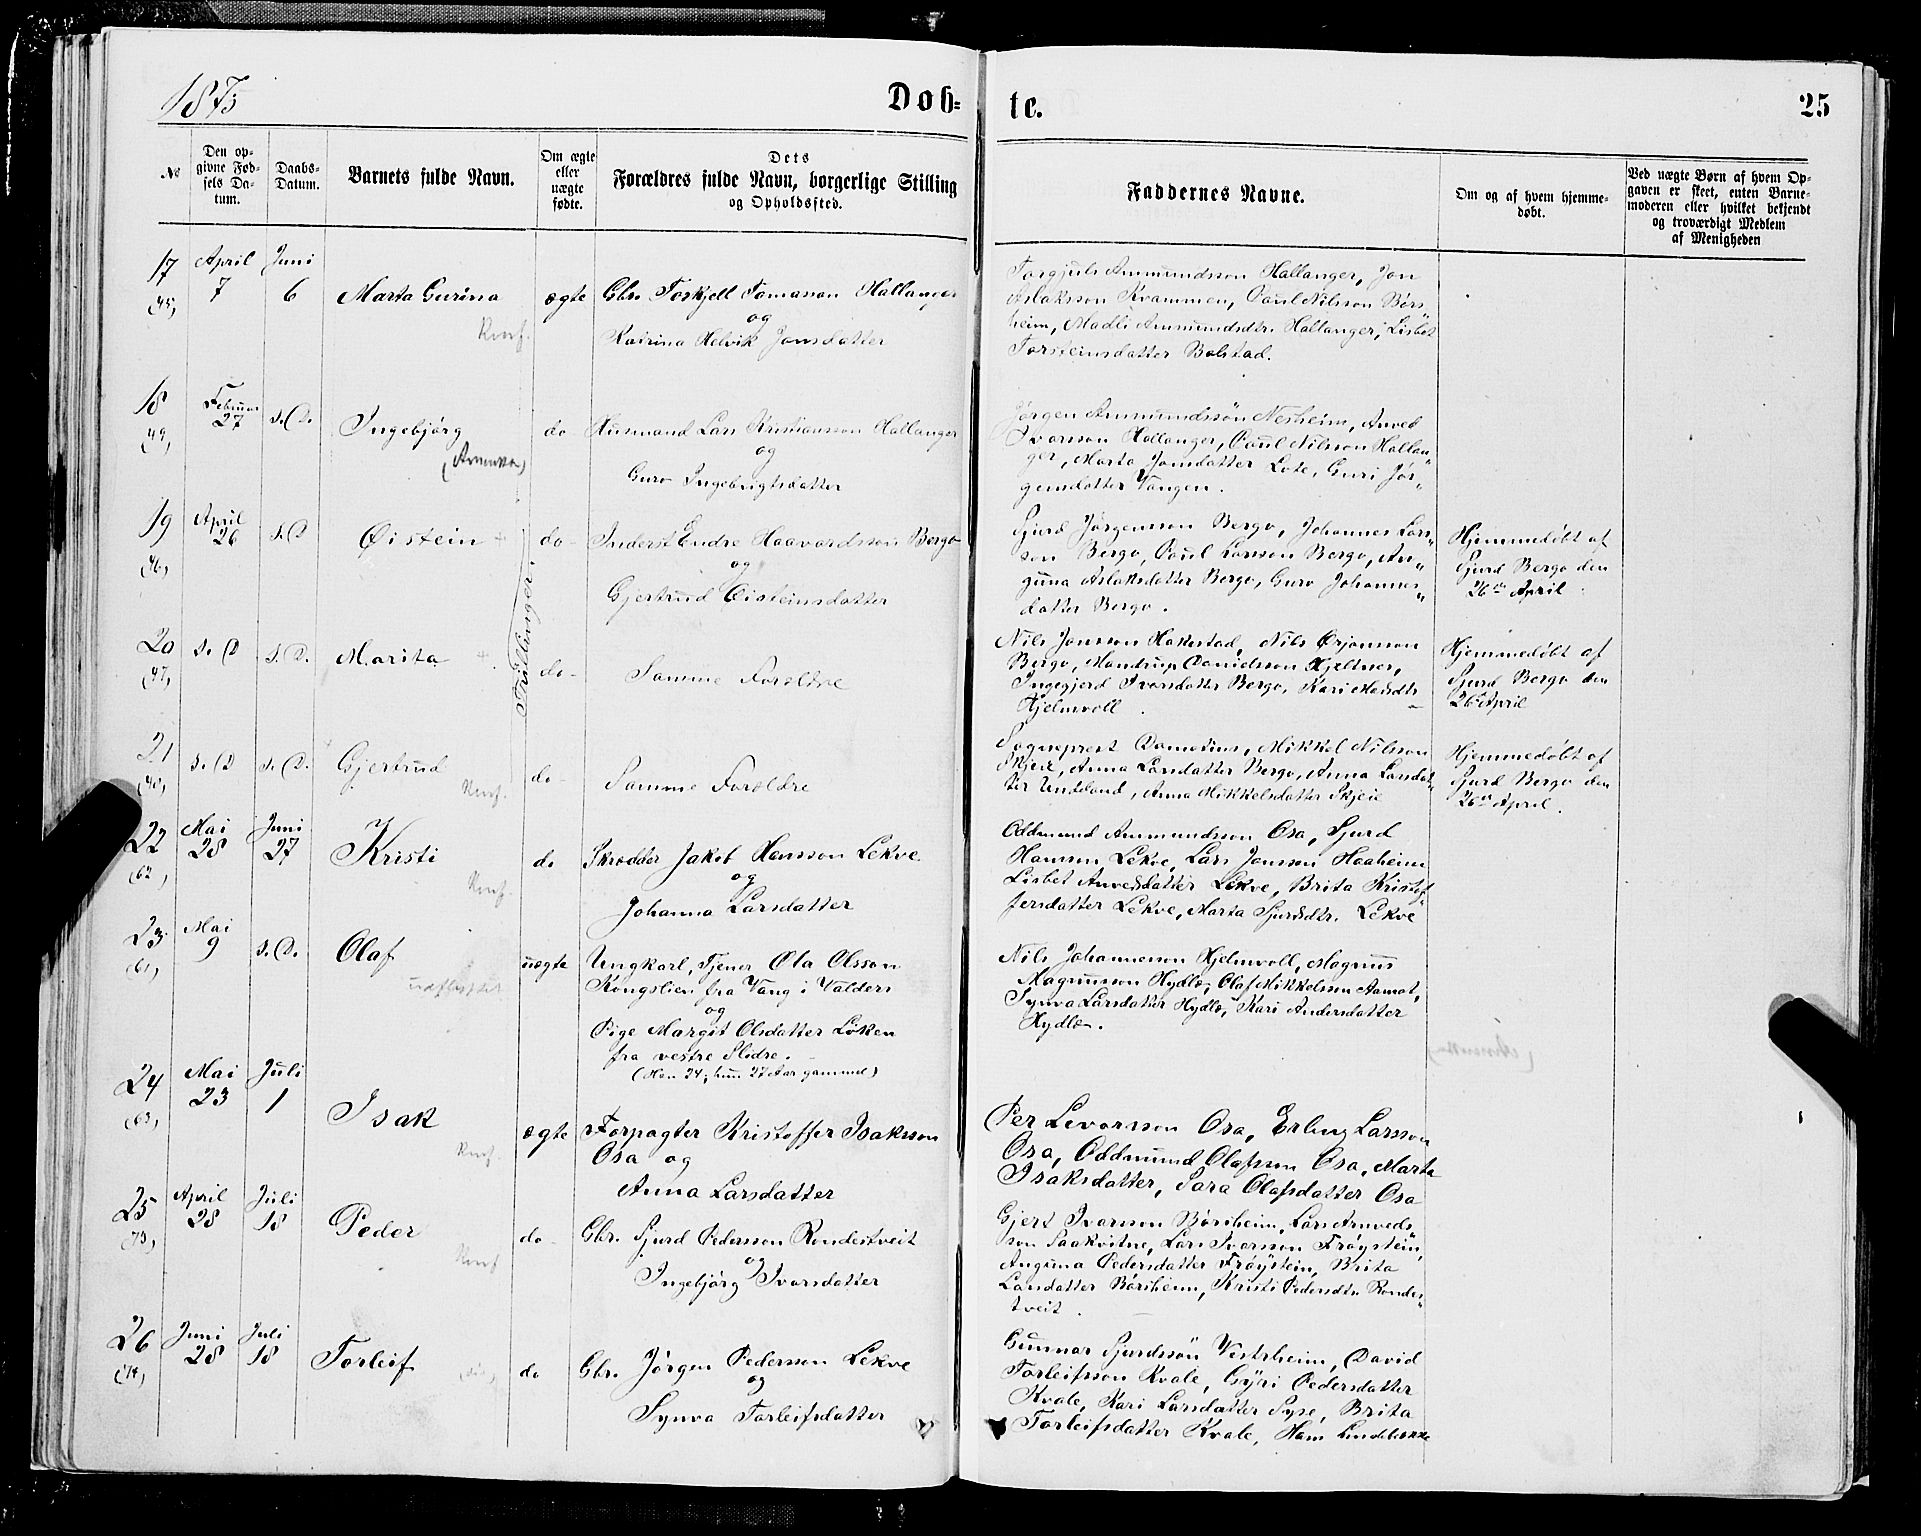 1875
Døb=
te.
25
№
Den op-
givne Fød-
sels Da-
tum.
Daabs-
Datum.
Barnets fulde Navn.
Om ægte
eller
uægte
fødte.
Dets
Forældres fulde Navn, borgerlige Stilling
og Opholdssted.
Faddernes Navne.
Om og af hvem hjemme-
døbt.
Ved uægte Børn af hvem Op-
gaven er skeet, enten Barne-
moderen eller hvilket bekjendt
og troværdigt Medlem
af Menigheden
17
(45)
April
7
Juni
6
Marta Gurina
Konf.
ægte
Gbr. Torkjell Tomasson Hallanger
og
Katrina Helvik Jonsdatter
Torgjuls Ammundsson Hallanger, Jon
Aslaksson Kvammen, Paul Nilsson Børs"
heim, Madli Ammundsdtr. Hallanger, Lisbet
Torsteinsdatter Bolstad.
18
(49)
Februar
27
s. D.
Ingebjørg
do
Husmand Lars Kristiansson Hallanger
og
Guro Ingebrigtsdatter
Jørgen Ammundssøn Nesheim, Anved
Ivarsson Hallanger, Paul Nilsson Hallan"
ger, Marta Jonsdatter Lote, Guri Jør"
gensdatter Vangen.
19
(46)
April
26
s. D
Øistein +
Trillinger.
do
Inderst Endre Haavardsson Bergo
og
Gjertrud Øisteinsdatter
Sjurd Jørgensson Bergo, Johannes Lars"
son Bergo, Paul Larsson Bergo, An"
guna Aslaksdatter Bergo, Guro Johannes"
datter Bergo.
Hjemmedøbt af
Sjurd Bergo den
26de April
20
(47)
s. D
s. D.
Marita +
do
Samme Forældre
Nils Jonsson Hakestad, Nils Ørjansson
Bergo, Mandrup Danielsson Hjeltnes,
Ingegjerd Ivarsdatter Bergo, Kari Madsdtr
Hjelmvoll.
Hjemmedøbt af
Sjurd Bergo den
26de April
21
(48)
s. D
s. D.
Gjertrud
Konf.
do
Samme Forældre
Sogneprest Dometius, Mikkel Nilsson
Skjeie, Anna Larsdatter Bergo, Anna Larsdat"
ter Undeland, Anna Mikkelsdatter Skjeie
Hjemmedøbt af
Sjurd Bergo den
26de April.
22
(62)
Mai
28
Juni
27
Kristi
Konf.
do
Skrædder Jakob Hansson Lekve
og
Johanna Larsdatter
Oddmund Ammundsson Osa, Sjurd
Hansson Lekve, Lars Jonsson Haaheim
Lisbet Anvedsdatter Lekve, Brita Kristof"
fersdatter Lekve, Marta Sjurdsdtr. Lekve
23
(61)
Mai
9
s. D.
Olaf
udflyttet
uægte
Ungkarl, Tjener Ola Olsson
Kongslien fra Vang i Valders
og
Pige Margit Olsdatter Løken
fra vestre Slidre.
(Han 24, hun 27 Aar gammel)
Nils Johannesson Hjelmvoll, Magnus
Magnusson Hydle, Olaf Mikkelsson Aamot,
Synva Larsdatter Hydle, Kari Andersdatter
Hydle.
24
(63)
Mai
23
Juli
1
Isak
Konf.
ægte
Forpagter Kristoffer Isaksson
Osa og
Anna Larsdatter
Per Levorsson Osa, Erling Larsson
Osa, Oddmund Olafsson Osa, Marta
Isaksdatter, Sara Olafsdatter Osa
25
(73)
April
28
Juli
18
Peder
Konf
do
Gbr. Sjurd Pedersson Rondestveit
og
Ingebjørg Ivarsdatter
Gjert Ivarsson Børsheim, Lars Arnveds"
son Saakvitne, Lars Ivarsson Frøystein,
Anguna Pedersdatter Frøystein, Brita
Larsdatter Børsheim, Kristi Pedersdtr. Rondes"
tveit.
26
(74)
Juni
28
Juli
18
Torleif
do
Gbr. Jørgen Pedersson Lekve
og
Synva Torleifsdatter
Gunnar Sjurdssøn Vestrheim, David
Torleifsson Kvale, Gyri Pedersdatter
Kvale, Kari Larsdatter Syse, Brita
Torleifsdatter Kvale, Hans Lindebrekke